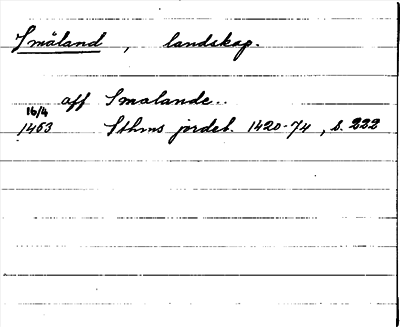 Småland, landskap.
aff Smalande..
16/4
1463 Sthms jordeb. 1420-74, s. 222